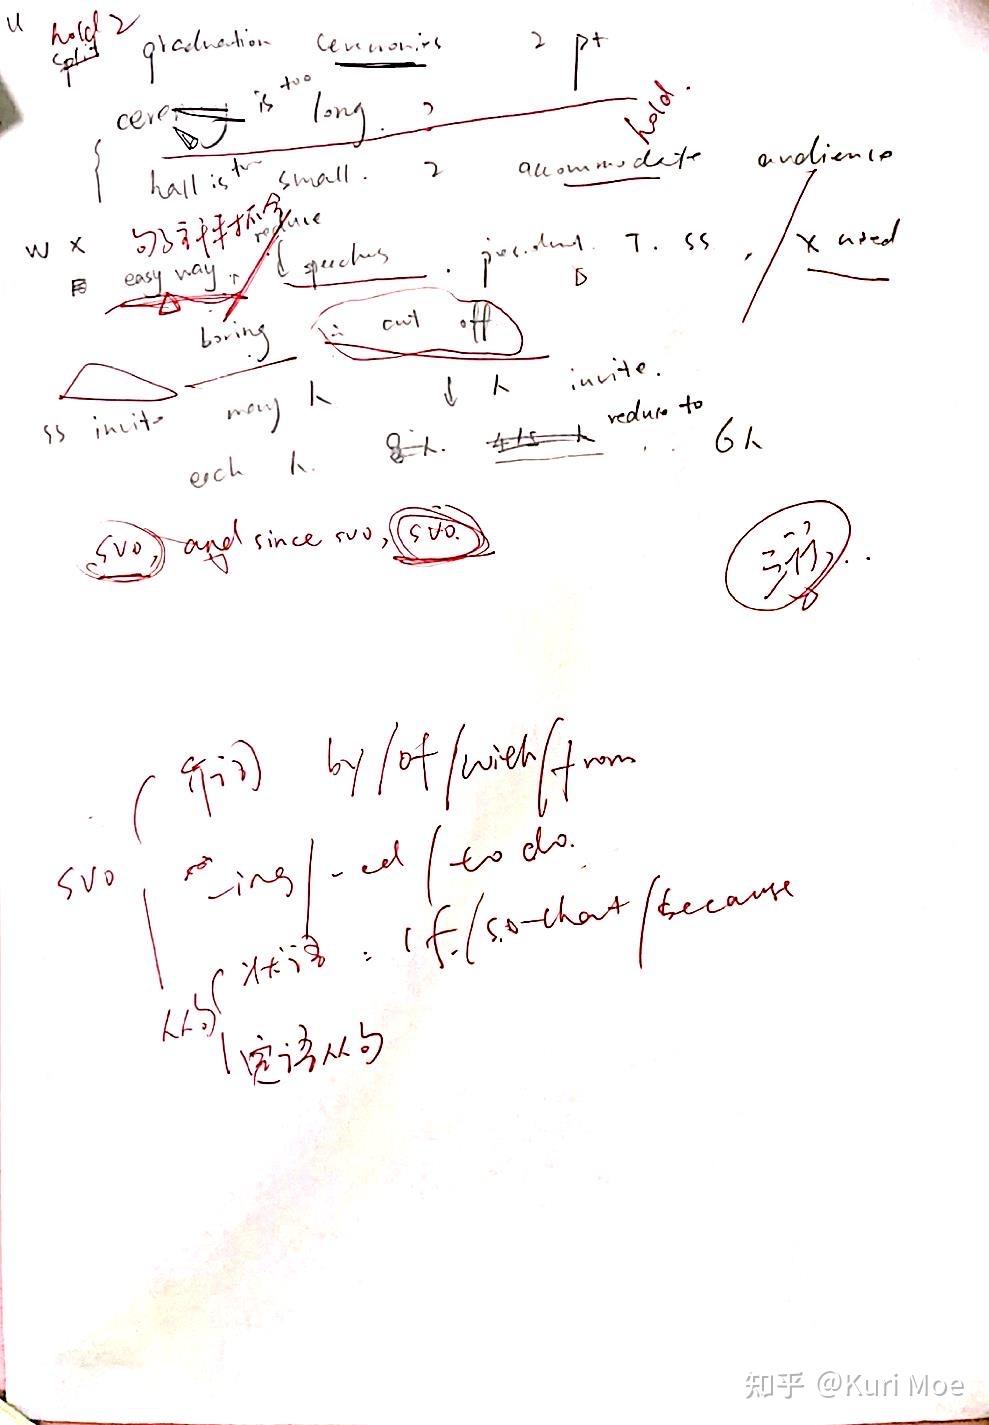 U hold 2
split graduation ceremonies 2 pt
ceremony is too long. 2
hold.
hall is too small. 2 accommodate audience
W X 句子
reduce
easy way. ↓ speeches. president. T. ss, X need
boring ∴ cut off
ss invite many 人 ↓ 人 invite.
each 人. 8人. 4/5 人 reduce to 6人
svo, and since svo, svo.
介词 by/of/with/from
svo -ing/-ed/to do.
从句 状语: if/so-that/because
定语从句
知乎 @Kuri Moe